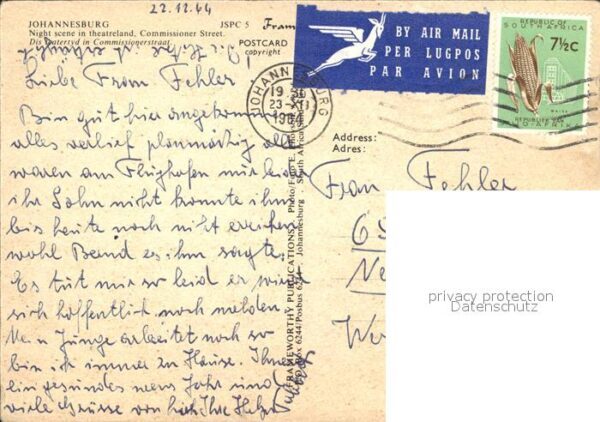 22.12.44
JOHANNESBURG
JSPC 5
Night scene in theatreland, Commissioner Street.
Dis Teatertyd in Commissionerstraat.
POSTCARD
copyright
BY AIR MAIL
PER LUGPOS
PAR AVION
REPUBLIC OF
SOUTH AFRICA
7½c
MAIZE
REPUBLIEK VAN
SUID-AFRIKA
JOHANNESBURG
19 30
23 XII
Address:
Adres:
Liebe Frau Fehler
Bin gut hier angekommen
alles verlief planmäßig alle
waren am Flughafen nur leider
ihr Sohn nicht konnte ihn
bis heute noch nicht erreichen
wohl Bernd es ihm sagte.
Es tut mir so leid er wird
sich hoffentlich noch melden.
Mein Junge arbeitet noch so
bin ich immer zu Hause. Ihnen
ein gesundes neues Jahr und
viele Grüsse von Ihre
Frau Fehler
FRAMEWORTHY PUBLICATIONS
P.O. Box 6244/Posbus 6244, Johannesburg - South Africa
privacy protection
Datenschutz